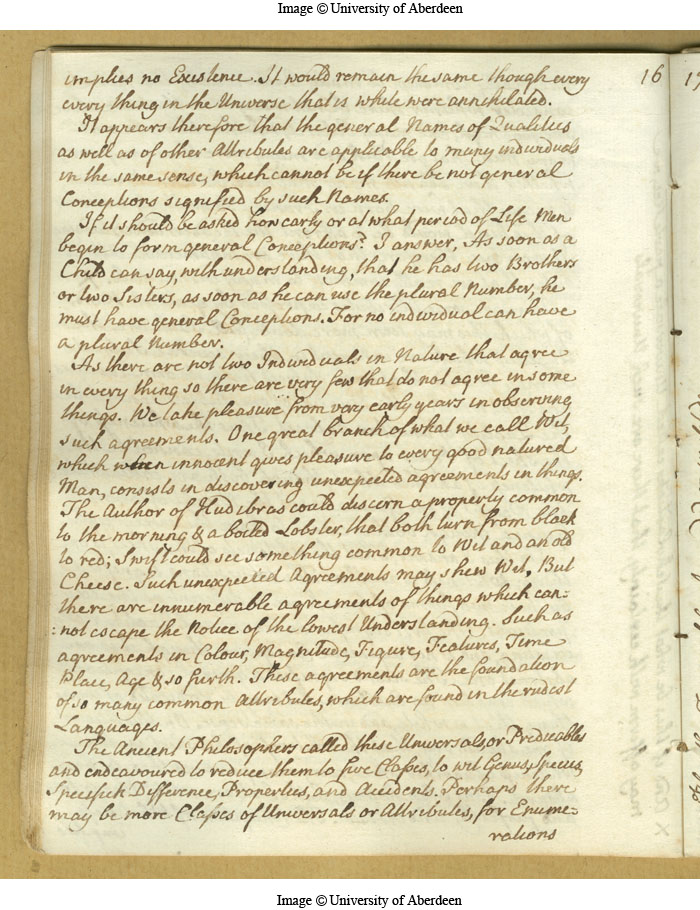 Image © University of Aberdeen
16
implies no Existence. It would remain the same though every
every thing in the Universe that is white were annihilated.
It appears therefore that the general Names of Qualities
as well as of other Attributes are applicable to many individuals
in the same sense, which cannot be if there be not general
Conceptions signified by such Names.
If it should be asked how early or at what period of Life Men
begin to form general Conceptions? I answer, As soon as a
Child can say, with understanding, that he has two Brothers
or two Sisters, as soon as he can use the plural Number, he
must have general Conceptions. For no individual can have
a plural Number.
As there are not two Individuals in Nature that agree
in every thing so there are very few that do not agree in some
things. We take pleasure from very early years in observing
such agreements. One great branch of what we call Wit,
which when innocent gives pleasure to every good natured
Man, consists in discovering unexpected agreements in things.
The Author of Hudibras could discern a property common
to the morning & a boiled Lobster, that both turn from black
to red; Swift could see something common to Wit and an old
Cheese. Such unexpected Agreements may shew Wit, But
there are innumerable agreements of things which can=
:not escape the Notice of the lowest Understanding. Such as
agreements in Colour, Magnitude, Figure, Features, Time
Place, Age & so furth. These agreements are the foundation
of so many common Attributes, which are found in the rudest
Languages.
The Ancient Philosophers called these Universals, or Predicables
and endeavoured to reduce them to five Classes, to wit Genus, Species,
Specifick Difference, Properties, and Accidents. Perhaps there
may be more Classes of Universals or Attributes, for Enume=
rations
Image © University of Aberdeen